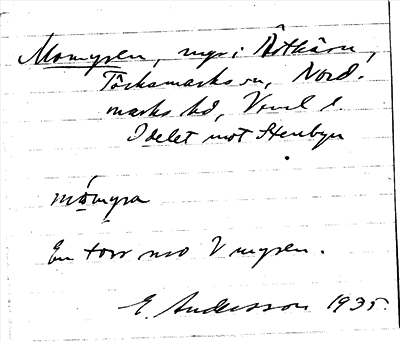 Momyren, myr i Östkärn,
Töcksmarks sn, Nord-
marks hd, Vrml l.
I delet mot Stenbyn
mómyra
En torr mo V myren.
E. Andersson 1935.